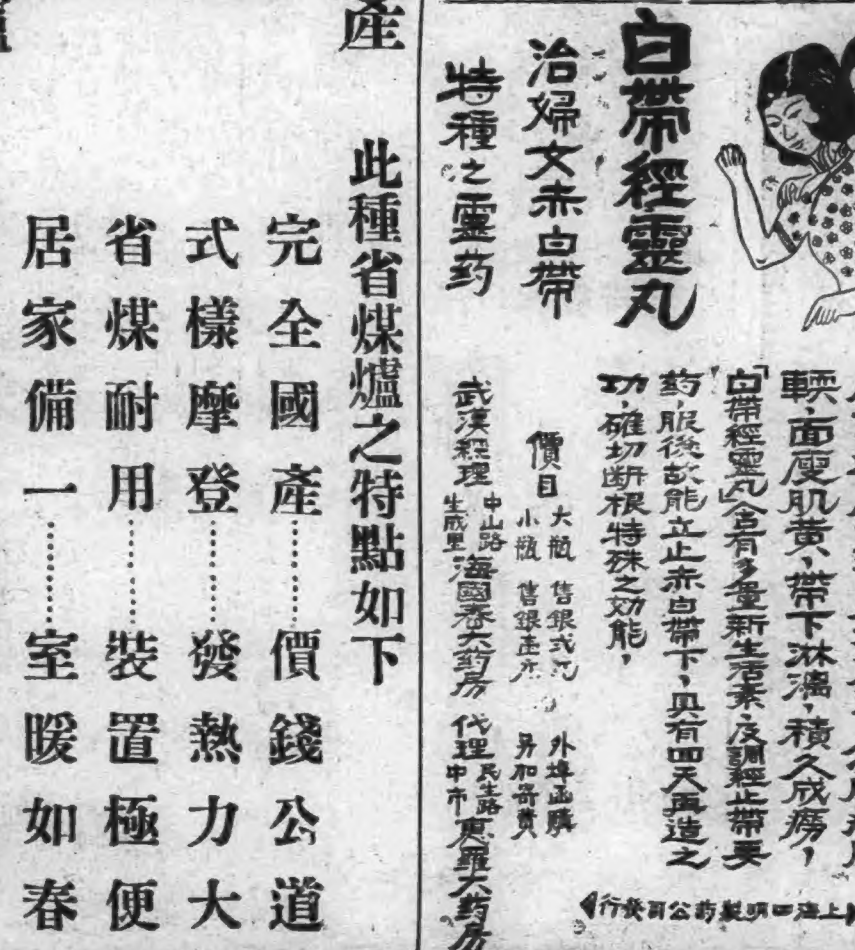 白帶經靈丸
治婦女赤白帶
特種之靈药
輭，面廋肌黃，帶下淋漓，積久成癆，
「白帶經靈丸」含有多量新生活素，及調經止帶要
药，服後故能立止赤白帶下，具有回天再造之
功，確切断根特殊之効能，
價目
大瓶 售銀弍元
小瓶 售銀壹元
外埠函購
另加寄費
武漢經理
中山路
生成里
海國春大药房
代理
民生路
中市
惠羅大药房
上海四明製药公司發行
產
此種省煤爐之特點如下
完全國產……價錢公道
式樣摩登……發熱力大
省煤耐用……裝置極便
居家備一……室暖如春